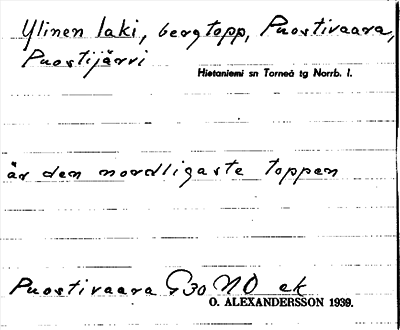 Ylinen laki, bergtopp, Puostivaara,
Puostijärvi
Hietaniemi sn Torneå tg Norrb. l.
är den nordligaste toppen
Puostivaara 30 NO ek
O. ALEXANDERSSON 1939.